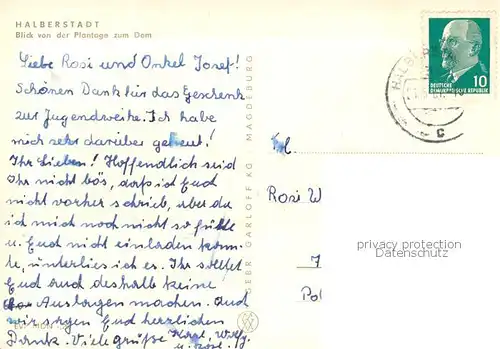 HALBERSTADT
Blick von der Plantage zum Dom
Liebe Rosi und Onkel Josef!
Schönen Dank für das Geschenk
zur Jugendweihe. Ich habe
mich sehr darüber gefreut!
Ihr Lieben! Hoffendlich seid
Ihr nicht bös, daß ich Euch
nicht vorher schrieb, aber da
ich mich noch nicht so fühlte
u. Euch nicht einladen konn-
te, unterlies ich es. Ihr solltet
Euch auch deshalb keine
Auslagen machen. Auch
wir sagen Euch herzlichen
Dank. Viele Grüße
GEBR. GARLOFF KG MAGDEBURG
DEUTSCHE
DEMOKRATISCHE REPUBLIK
10
HALBE
c
Rosi W
7
Pol
privacy protection
Datenschutz